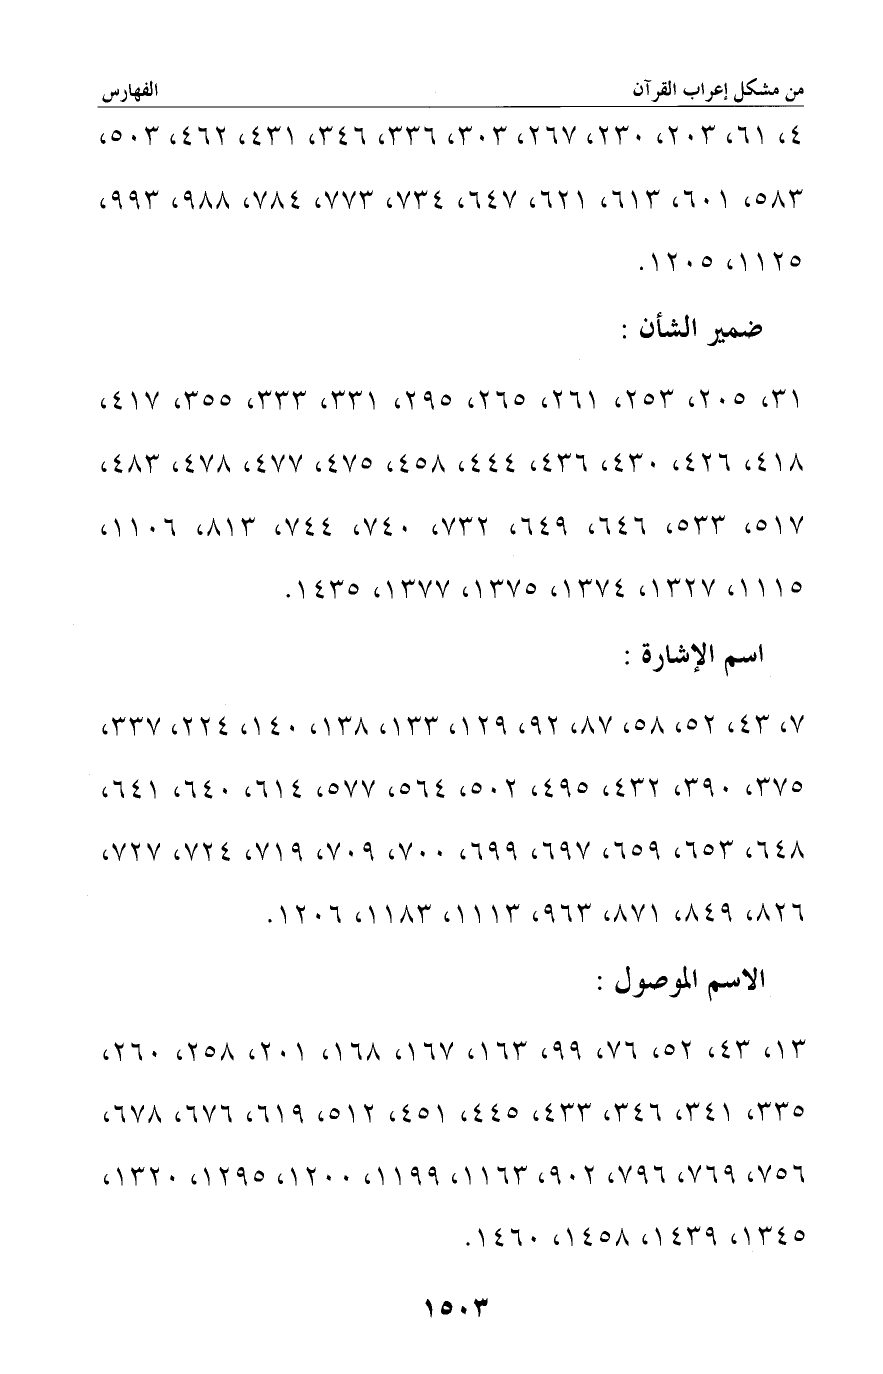 من مشكل إعراب القرآن الفهارس
٤، ٦١، ٢٠٣، ٢٣٠، ٢٦٧، ٣٠٣، ٣٣٦، ٣٤٦، ٤٣١، ٤٦٢، ٥٠٣،
٥٨٣، ٦٠١، ٦١٣، ٦٢١، ٦٤٧، ٧٣٤، ٧٧٣، ٧٨٤، ٩٨٨، ٩٩٣،
١١٢٥، ١٢٠٥.
ضمير الشأن :
٣١، ٢٠٥، ٢٥٣، ٢٦١، ٢٦٥، ٢٩٥، ٣٣١، ٣٣٣، ٣٥٥، ٤١٧،
٤١٨، ٤٢٦، ٤٣٠، ٤٣٦، ٤٤٤، ٤٥٨، ٤٧٥، ٤٧٧، ٤٧٨، ٤٨٣،
٥١٧، ٥٣٣، ٦٤٦، ٦٤٩، ٧٣٢، ٧٤٠، ٧٤٤، ٨١٣، ١١٠٦،
١١١٥، ١٣٢٧، ١٣٧٤، ١٣٧٥، ١٣٧٧، ١٤٣٥.
اسم الإشارة :
٧، ٤٣، ٥٢، ٥٨، ٨٧، ٩٢، ١٢٩، ١٣٣، ١٣٨، ١٤٠، ٢٢٤، ٣٣٧،
٣٧٥، ٣٩٠، ٤٣٢، ٤٩٥، ٥٠٢، ٥٦٤، ٥٧٧، ٦١٤، ٦٤٠، ٦٤١،
٦٤٨، ٦٥٣، ٦٥٩، ٦٩٧، ٦٩٩، ٧٠٠، ٧٠٩، ٧١٩، ٧٢٤، ٧٢٧،
٨٢٦، ٨٤٩، ٨٧١، ٩٦٣، ١١١٣، ١١٨٣، ١٢٠٦.
الاسم الموصول :
١٣، ٤٣، ٥٢، ٧٦، ٩٩، ١٦٣، ١٦٧، ١٦٨، ٢٠١، ٢٥٨، ٢٦٠،
٣٣٥، ٣٤١، ٣٤٦، ٤٣٣، ٤٤٥، ٤٥١، ٥١٢، ٦١٩، ٦٧٦، ٦٧٨،
٧٥٦، ٧٦٩، ٧٩٦، ٩٠٢، ١١٦٣، ١١٩٩، ١٢٠٠، ١٢٩٥، ١٣٢٠،
١٣٤٥، ١٤٣٩، ١٤٥٨، ١٤٦٠.
١٥٠٣